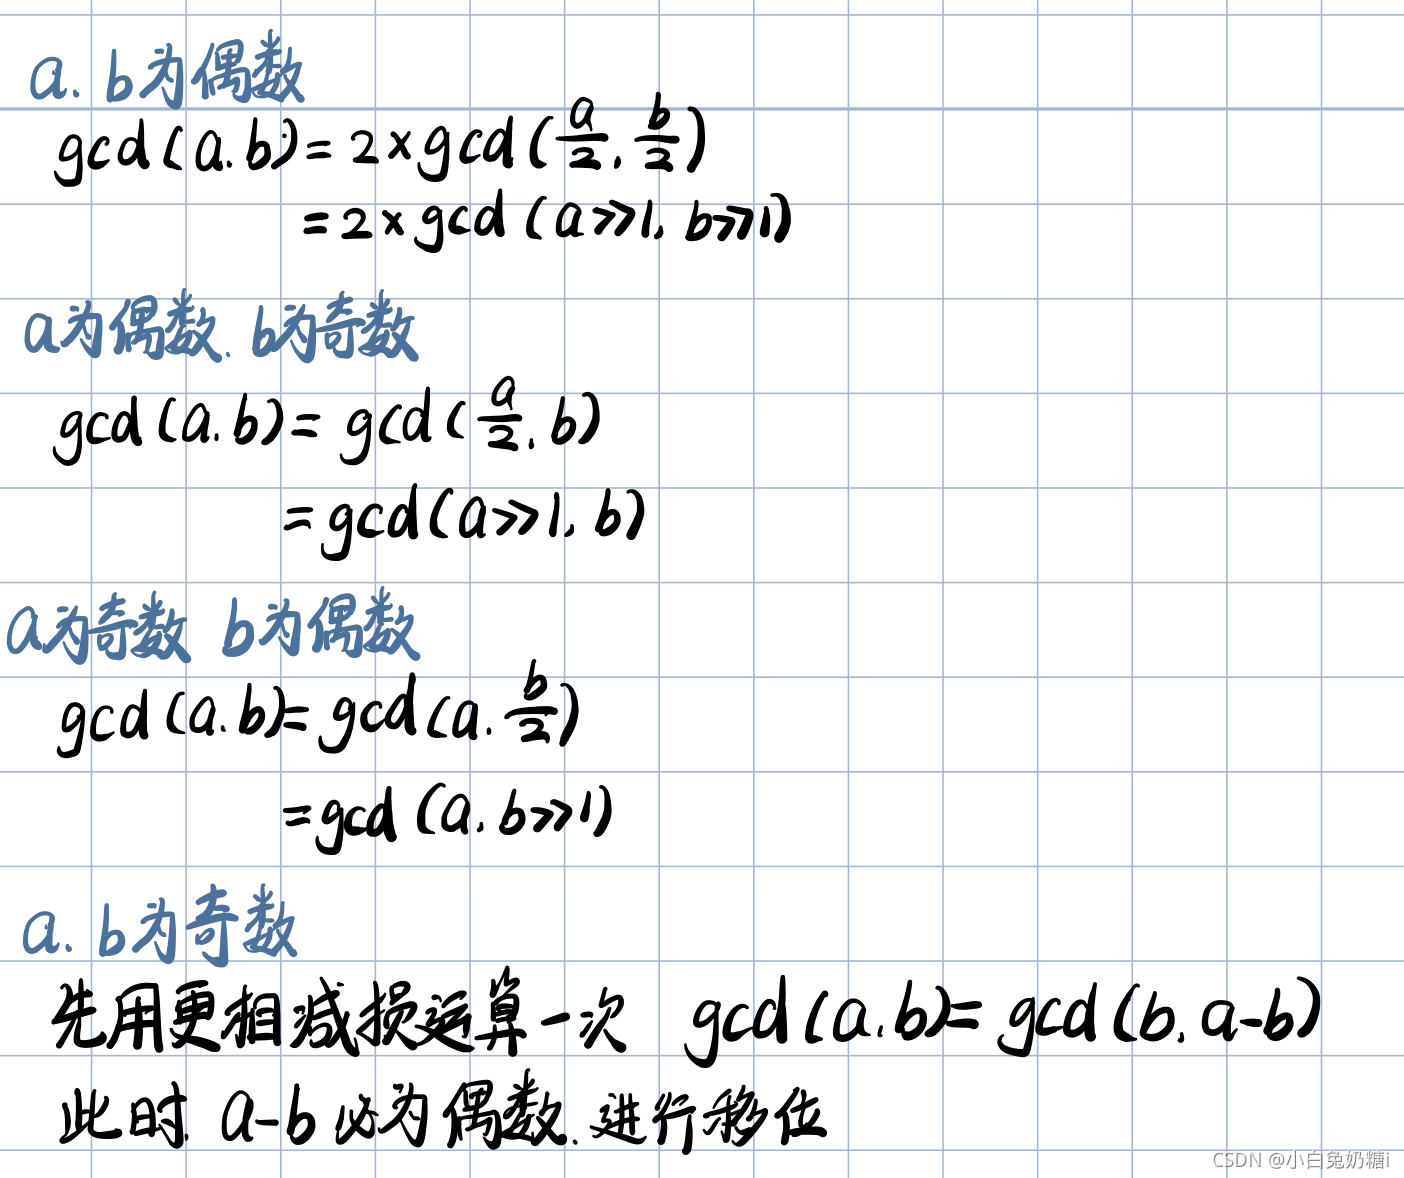 a.b为偶数
gcd(a.b)=2×gcd(a/2,b/2)
=2×gcd(a>>1,b>>1)
a为偶数.b为奇数
gcd(a.b)=gcd(a/2,b)
=gcd(a>>1,b)
a为奇数 b为偶数
gcd(a.b)=gcd(a.b/2)
=gcd(a.b>>1)
a.b为奇数
先用更相减损运算一次 gcd(a,b)=gcd(b,a-b)
此时.a-b必为偶数.进行移位
CSDN @小白兔奶糖i